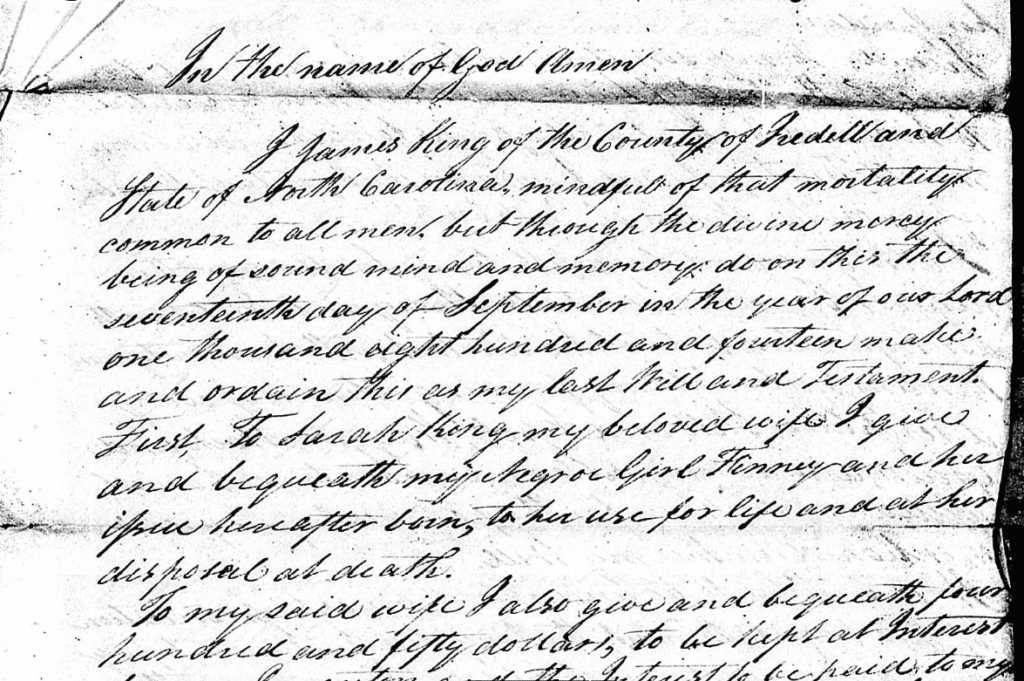 In the name of God Amen
I James King of the County of Iredell and
State of North Carolina, mindful of that mortality
common to all men, but through the divine mercy
being of sound mind and memory do on this the
seventeenth day of September in the year of our Lord
one thousand eight hundred and fourteen make
and ordain this as my last Will and Testament.
First, To Sarah King my beloved wife I give
and bequeath my Negroe Girl Finney and her
issue hereafter born, to her use for life and at her
disposal at death.
To my said wife I also give and bequeath four
hundred and fifty dollars, to be kept at Interest
the Interest to be paid to my